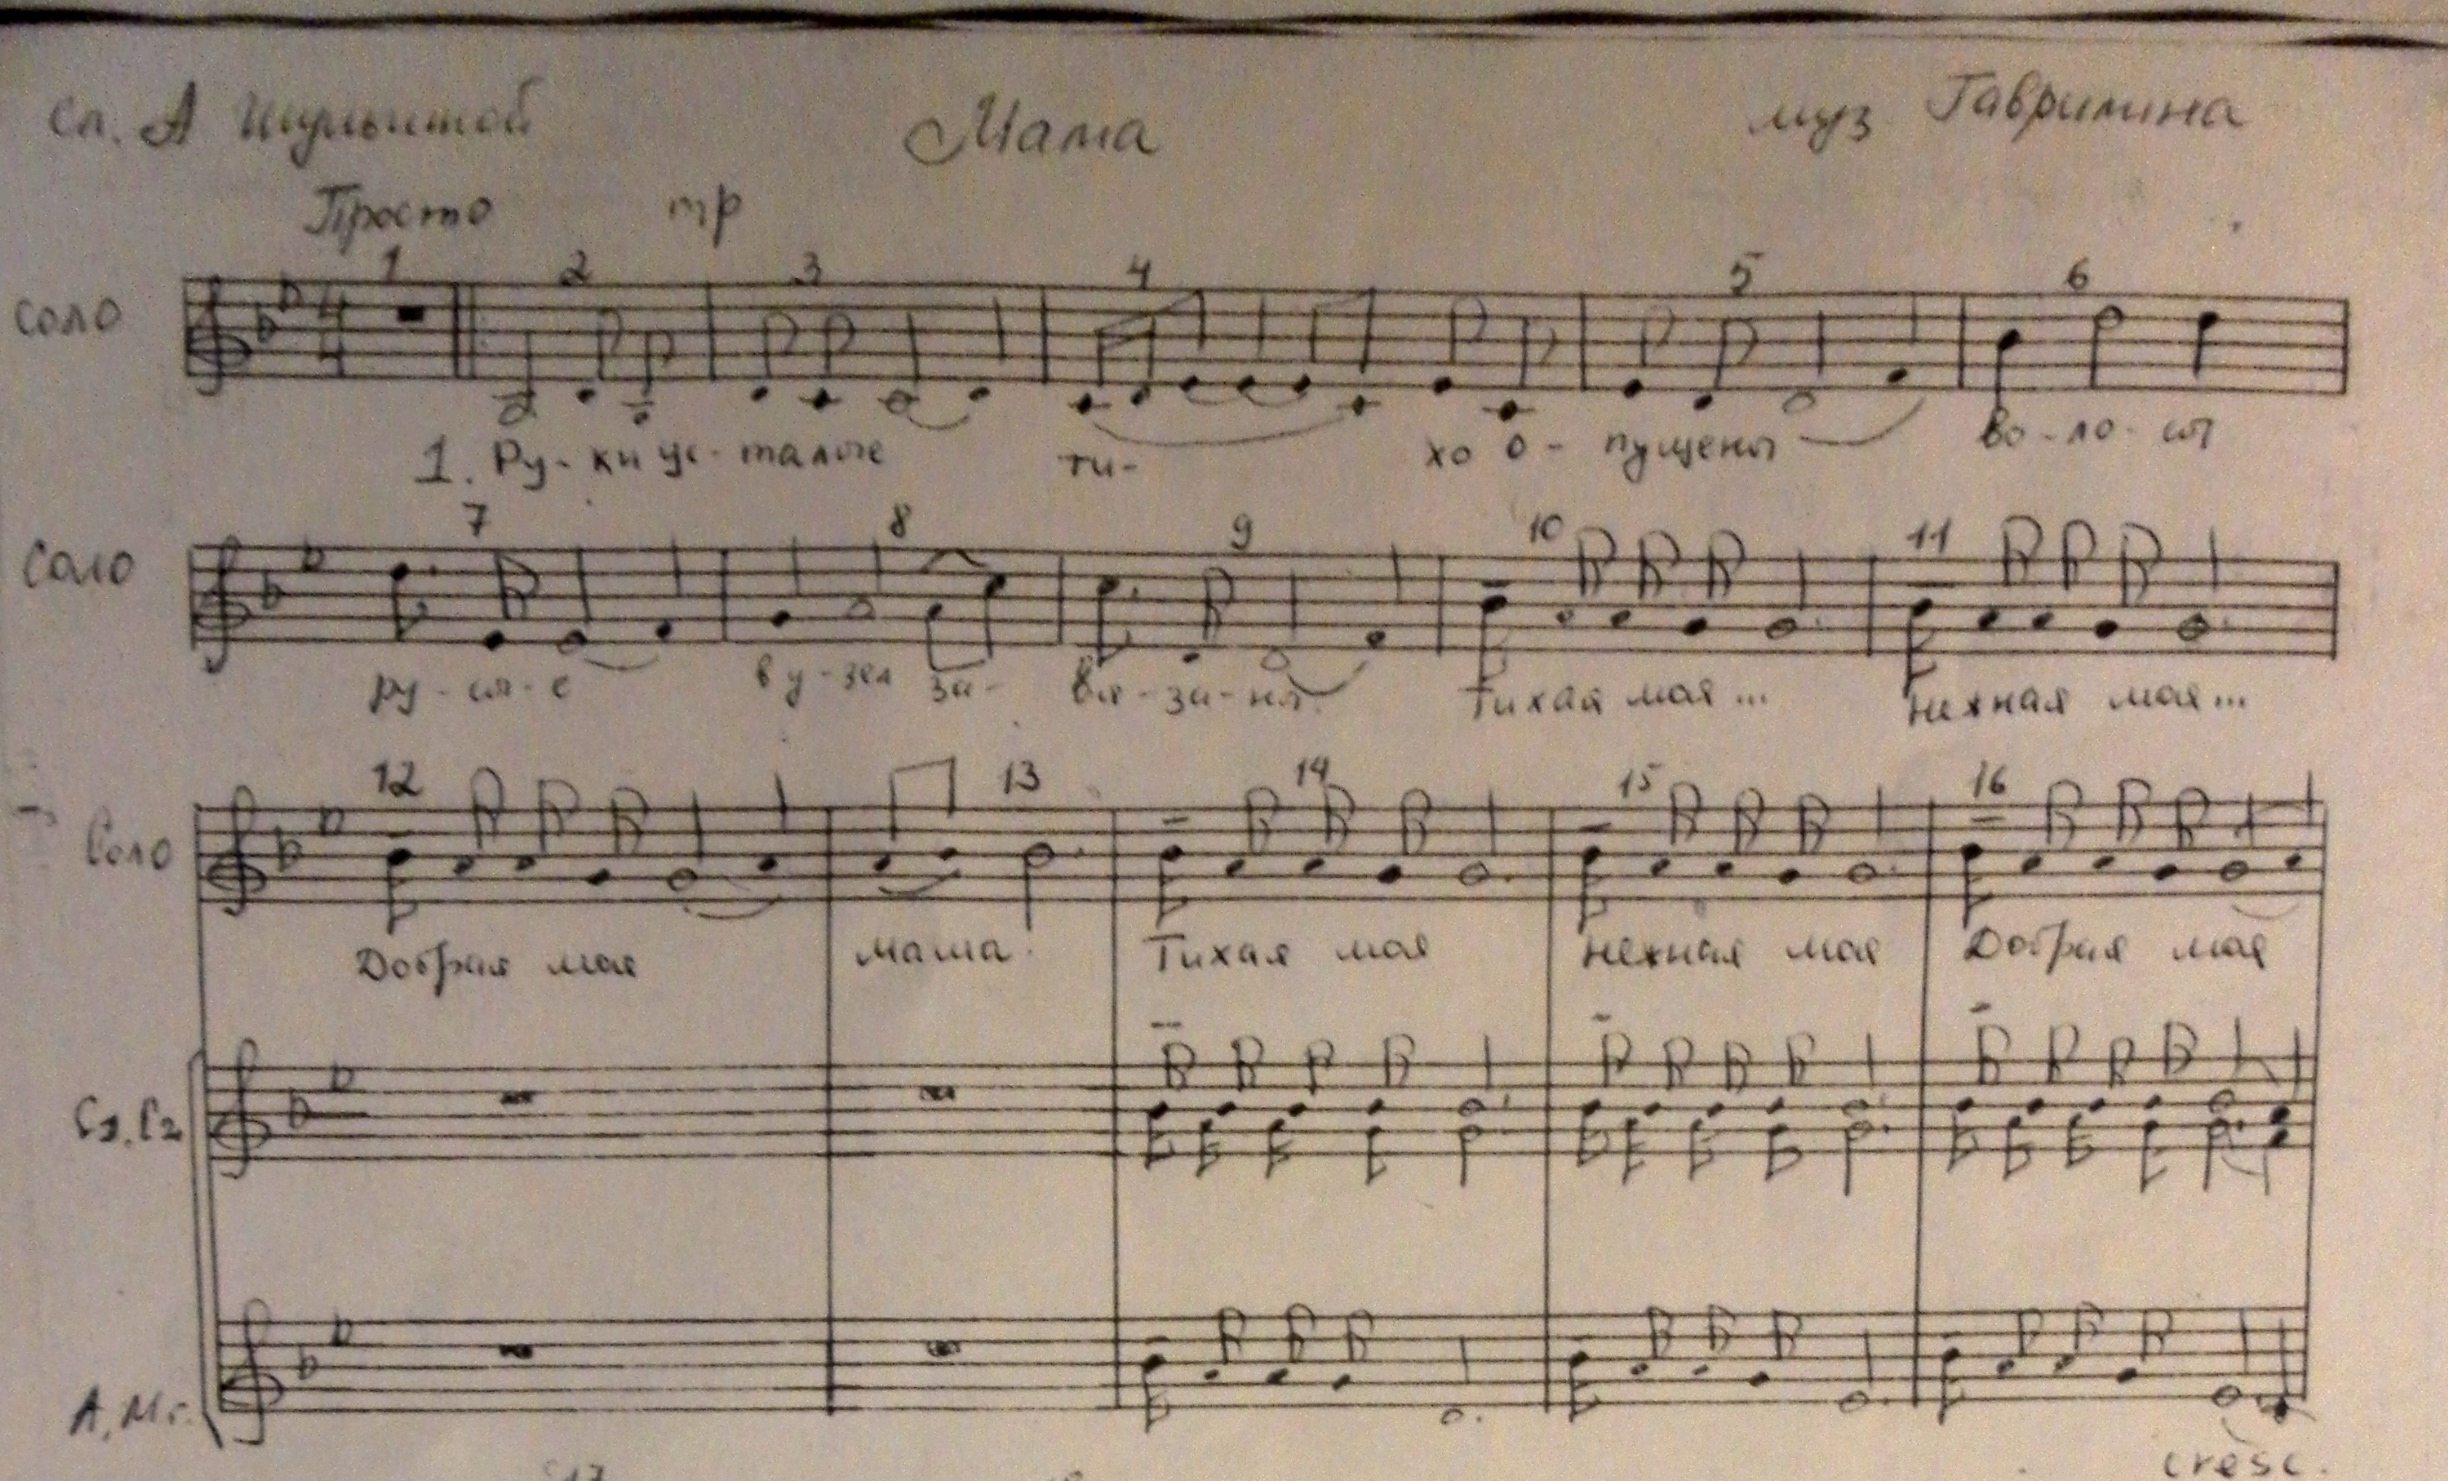 Сл. А Шульгиной Мама муз Гаврилина
Просто mp
1 2 3 4 5 6
Соло 4 4
1. Ру- ки ус- талые ти- хо о- пущены во- ло- сы
7 8 9 10 11
Соло
ру - сы - е в у - зел за- вя - за - ны. Тихая моя... Нежная моя...
12 13 14 15 16
Соло
Добрая моя мама. Тихая моя Нежная моя Добрая моя
С1, С2
А, Мг.
cresc.
17